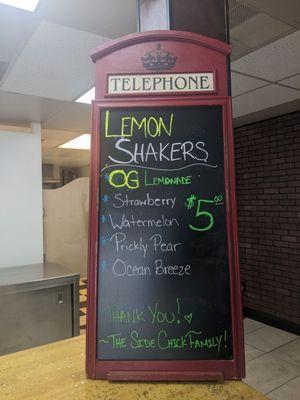 TELEPHONE
LEMON
SHAKERS
OG LEMONADE
Strawberry
Watermelon
Prickly Pear
Ocean Breeze
$5.00
THANK YOU!
~THE SIDE CHICK FAMILY!